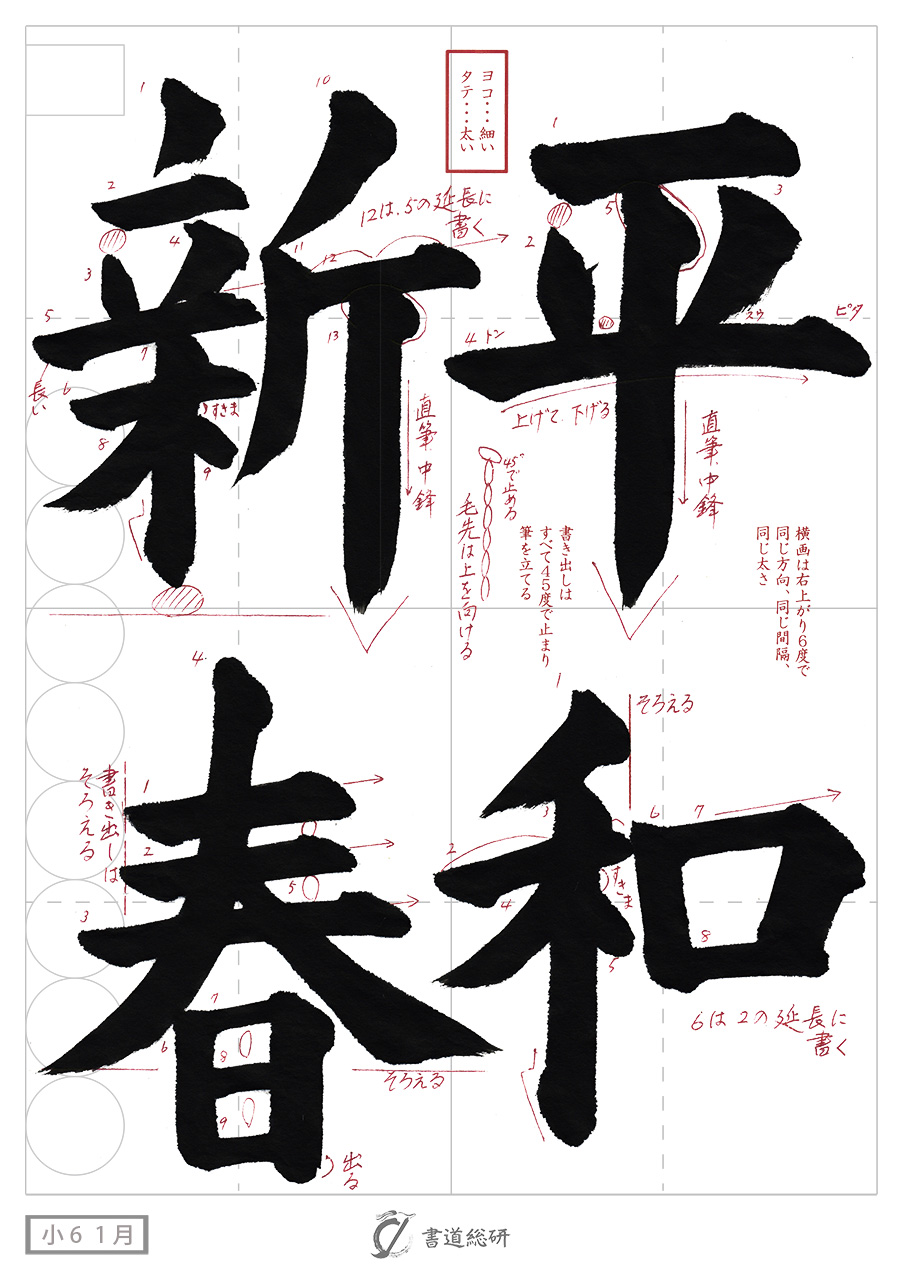 平和
新春
ヨコ・・・細い
タテ・・・太い
1
2
3
4
5
トン
スウ
ピタ
上げて、下げる
直筆、中鋒
横画は右上がり6度で
同じ方向、同じ間隔、
同じ太さ
書き出しは
すべて45度で止まり
筆を立てる
45°で止める
毛先は上を向ける
1
2
3
4
5
6
7
8
そろえる
すきま
6は2の延長に
書く
1
2
3
4
5
6
7
8
9
10
11
12
13
12は、5の延長に
書く
長い
すきま
直筆、中鋒
1
2
3
4
5
6
7
8
9
書き出しは
そろえる
そろえる
出る
小6 1月
書道総研